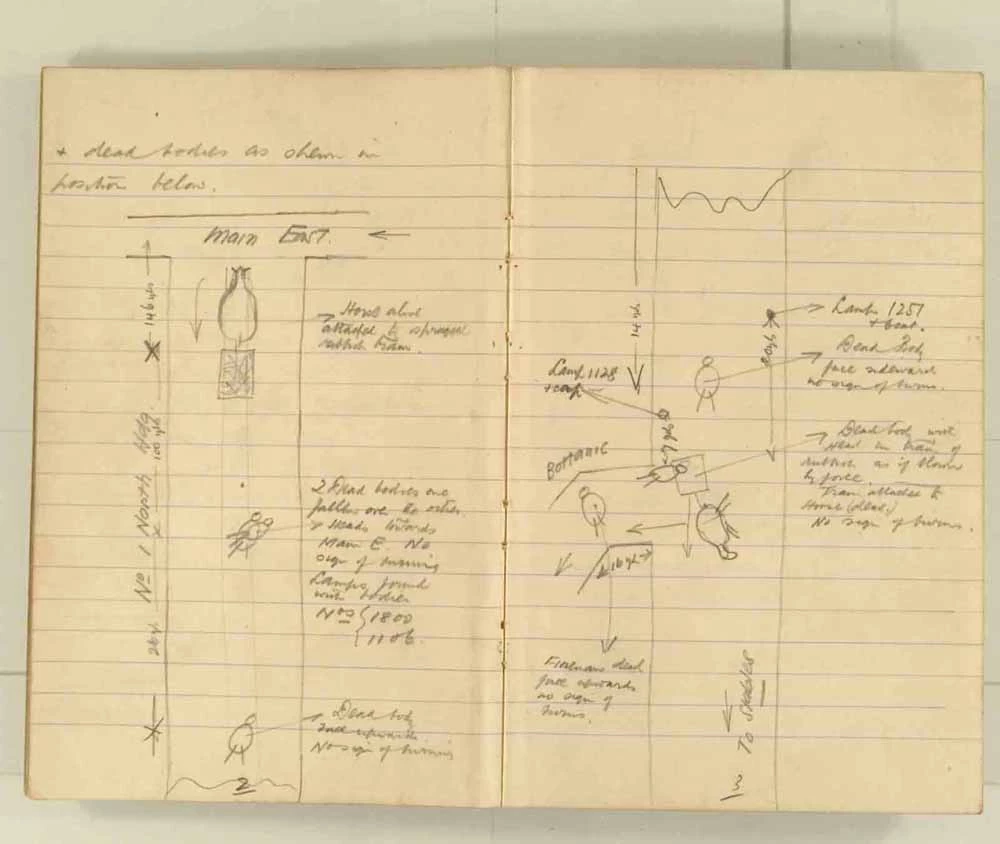 + dead bodies as shewn in
position below.
Main East.
14 yds
No 1 North Hdg
100 yds
26 yds
Horse alive
attached to spragged
rubbish tram.
2 Dead bodies one
fallen over the other.
Heads towards
Main E. No
sign of burning
Lamps found
with bodies
Nos 1800
1106.
Dead body
face upwards.
No sign of burning
2
14 yds
Lamp 1251
+ coat.
20 yds
Dead Body
face sideward
no sign of burns.
Lamp 1128
+ cap
Dead body with
Head in tram of
rubbish as if blown
by force.
Tram attached to
Horse (dead.)
No sign of burns.
Bottanic
16 yds
Firemans dead
face upwards
no sign of
burns.
To Stables
3